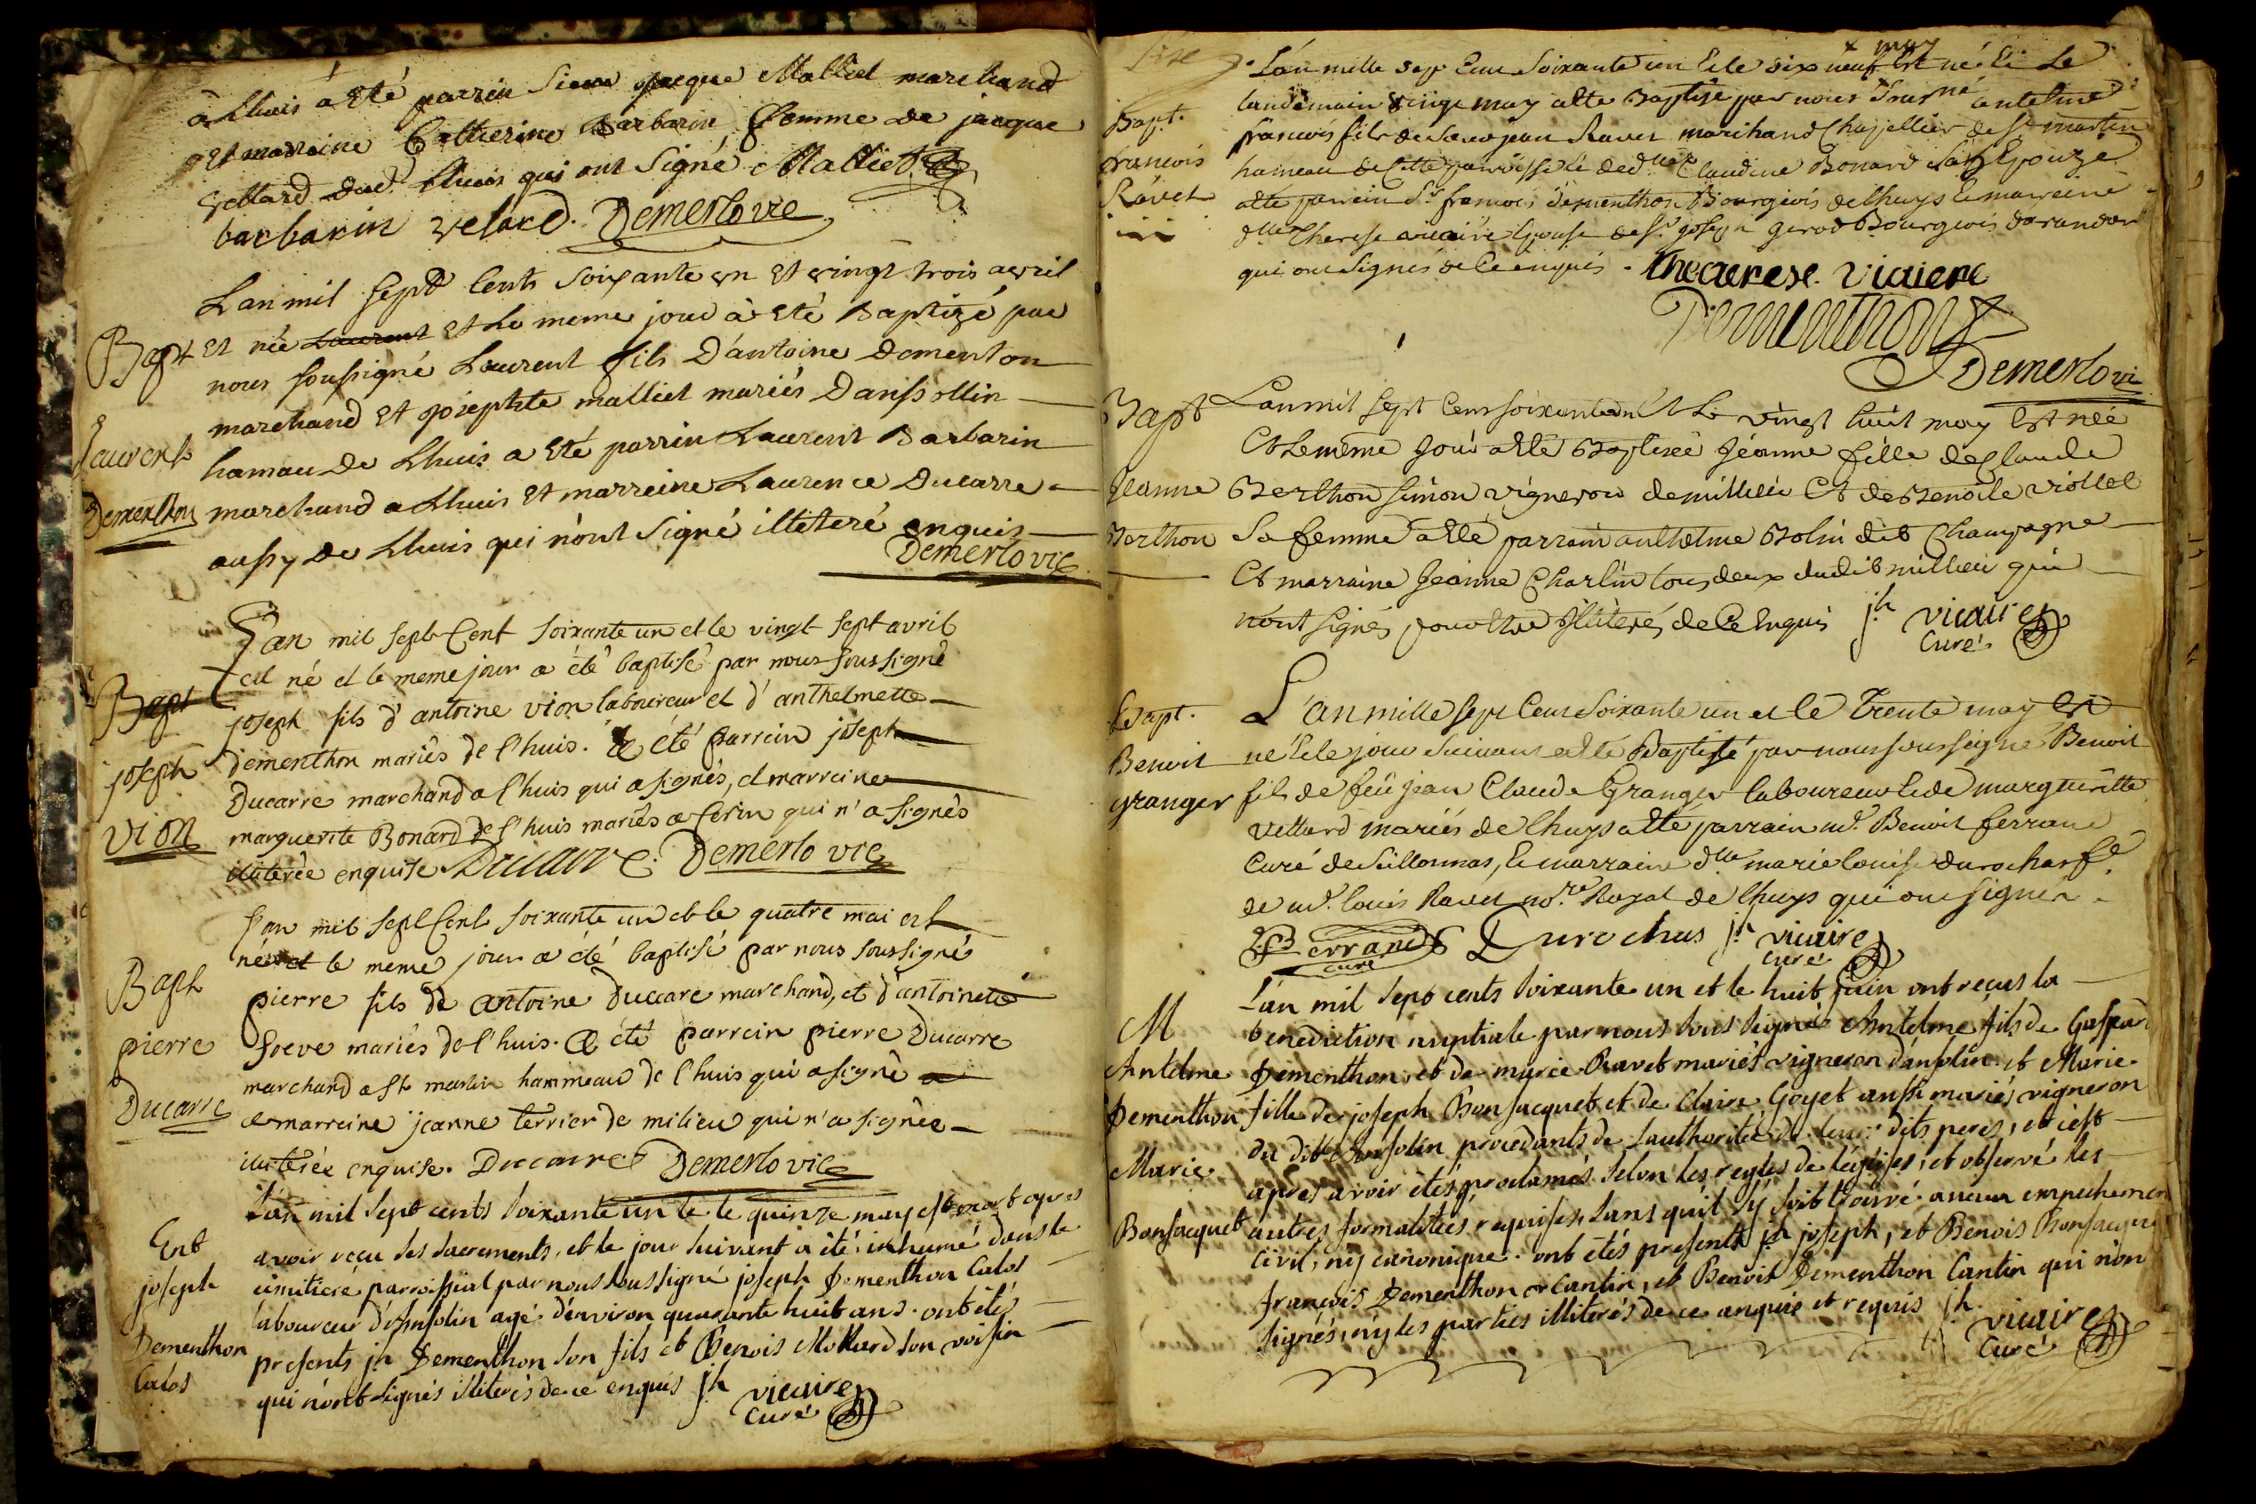 à Lhuis à Eté parrin Sieur jacque Malliet marchand
et marraine Catherine Barbarin femme de jacque
vellard dud Lhuis qui ont Signé Malliet
barbarin velard. Demerlo vic
Lan mil sept Cents soixante un Et vingt trois avril
Bapt Et née Laurent Et Le meme jour à Eté Baptizé par
nous soussigné Laurent fils D'antoine Dementon
marchand Et josephte malliet mariés Danssollin
Laurent hamau De Lhuis a Eté parrin Laurent Barbarin
Dementhon marchand a Lhuis Et marreine Laurence Ducarre
aussy de Lhuis qui n'ont Signé illiteré enquis
Demerlo vic
L'an mil sept Cent soixante un et le vingt sept avril
Bapt est né et le meme jour a été baptisé par nous soussigné
joseph fils d'antoine vion laboureur et d'anthelmette
joseph dementhon mariés de l'huis. a été parrein joseph
Ducarre marchand a l'huis qui a signés, et marreine
vion marguerite Bonard de l'huis mariés a Cerin qui n'a signés
illiterée enquise Ducarre. Demerlo vic
L'an mil sept Cent soixante un et le quatre mai est
né et le meme jour a été baptisé par nous soussigné
Bapt pierre fils de antoine Ducare marchand, et d'antoinette
pierre Soeve mariés de l'huis. a été parrein pierre Ducarre
marchand a st martin hammeau de l'huis qui a signé
Ducarre a marreine jeanne terrier de milieu qui n'a signée
illiterée enquise. Ducarre Demerlo vic
L'an mil sept cents soixante un et le quinze may est mort apres
Ent avoir reçu ses sacrements, et le jour suivant a été inhumé dans le
joseph cimitiere parroissial par nous soussigné joseph Dementhon Calos
laboureur d'Ansolin agé d'environ quarante huit ans. ont étés
Dementhon presents jh Dementhon son fils et Benois Mollard son voisin
Calos qui n'ont signés illiterés de ce enquis jh vicaire
curé
L'an mille sept Cent soixante un et le dix neuf may Est né Et Le
landemain vingt may a été Baptisé par nous antelme
Bapt. francois fils de jean Ravet marchand Chapellier de St martin
francois hameau de Cette parroisse et de dlle Claudine Bonard son Epouze
Ravet a été parrain Sr francois dementhon Bourgeois de lhuys Et marreine
dlle Therese vicaire Epouse de Sr joseph gerod Bourgeois darandon
qui ont signés de Ce enquis. Thecerese. viciere
Dementhon
Demerlo vi
Bapt Lan mil sept Cent soixante un Et Le vingt huit may Est née
Et Le même jour a Eté Baptisée jeanne fille de Claude
jeanne Berthon simon vigneron de millieu Et de Benoite viollet
Berthon Sa femme a Eté parrain anthelme Bolin dit Champagne
Et marraine jeanne Charlin tous deux dudit millieu qui
n'ont signés pour Etre illiterés de Ce Enquis jh vicaire
Curé
Bapt. L'an mille sept Cent soixante un et le trente may est
Benoit né Et le jour suivant a été Baptisé par nous soussigné Benoit
granger fils de feü jean Claude Granger laboureur et de margueritte
vellard mariés de lhuys a été parrain mr. Benoit ferrand
Curé de seillonnas, et marraine dlle marie louise durochas fe.
de mr. louis Ravet nore Royal de lhuys qui ont signés.
ferrand Durochas jh vicaire
curé curé
L'an mil sept cents soixante un et le huit juin ont reçus la
M benediction nuptiale par nous sous signés Antelme fils de Gaspard
Antelme Dementhon, et de marie Ravet mariés vigneron d'ansolin et Marie
Dementhon fille de joseph Bonsacquet et de Claire Goyet aussi mariés vigneron
du dit Ansolin procedants de l'authoritée de leurs dits peres, et c'est
Marie apres avoir étés proclamés selon les regles de l'eglise, et observé les
Bonsacquet autres formalitées requises sans qu'il s'y soit trouvé aucun empechement
civil, ny canonique. ont étés presents jh joseph, et Benois Bonsacquet
françois Dementhon Cantin, et Benoit Dementhon Cantin qui n'on
signés, ny les parties illiterés de ce enquis et requis jh vicaire
Curé